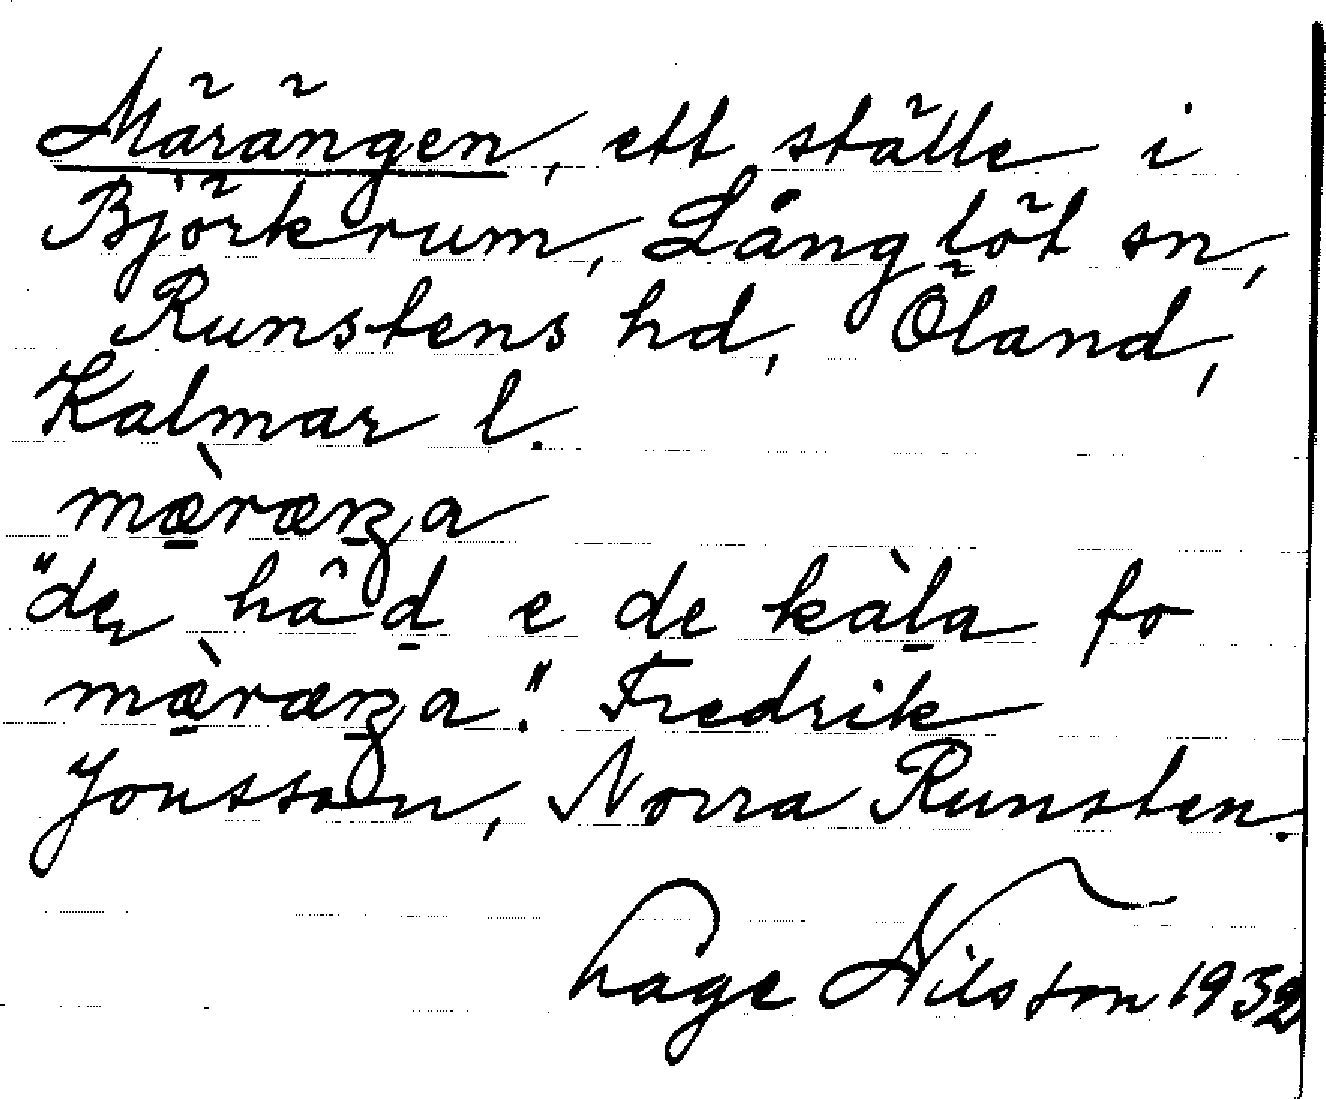 Märängen, ett ställe i
Björkrum, Långlöt sn,
Runstens hd, Öland,
Kalmar l.
mæ̀ræŋa
"de hâd e de kàla fo
mæ̀ræŋa". Fredrik
Jonsson, Norra Runsten.
Lage Nilsson 1932